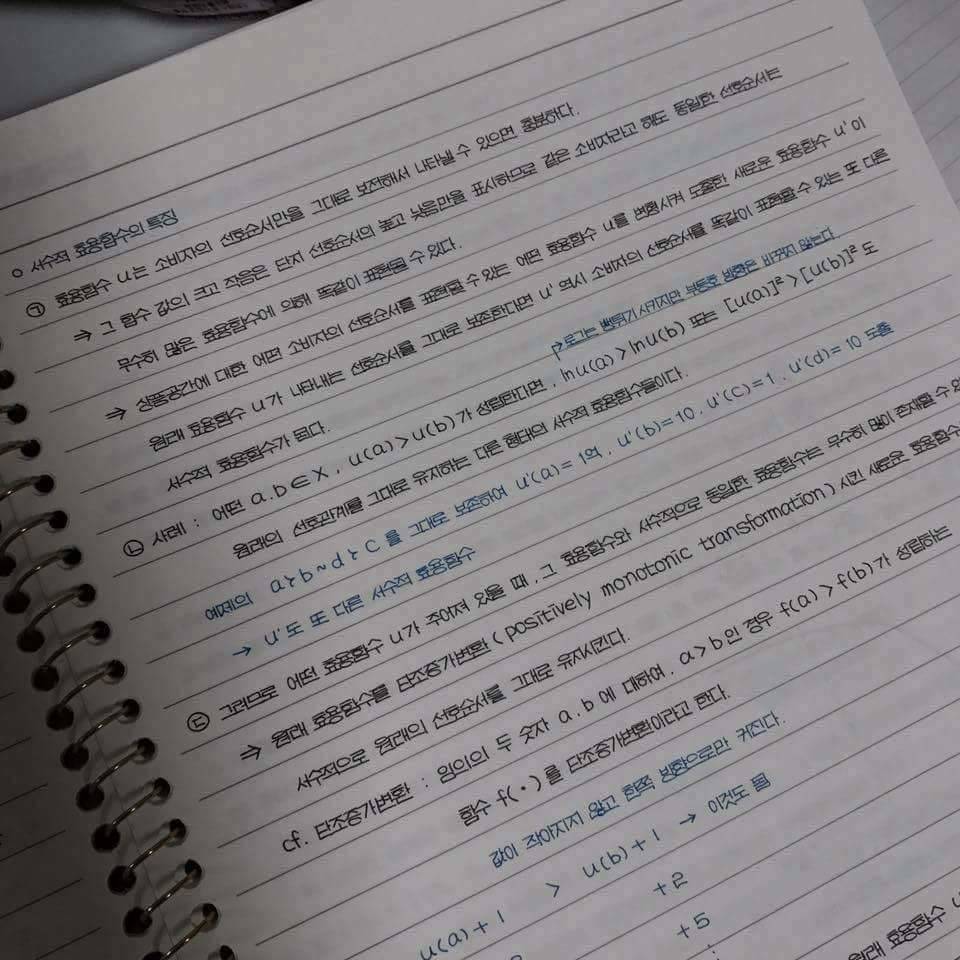 ○ 서수적 효용함수의 특징
㉠ 효용함수 u는 소비자의 선호순서만을 그대로 보전해서 나타낼 수 있으면 충분하다.
⇒ 그 함수 값의 크고 작음은 단지 선호순서의 높고 낮음만을 표시하므로 같은 소비자라고 해도 동일한 선호순서는
무수히 많은 효용함수에 의해 똑같이 표현될 수 있다.
⇒ 상품공간에 대한 어떤 소비자의 선호순서를 표현할 수 있는 어떤 효용함수 u를 변형시켜 도출한 새로운 효용함수 u'이
원래 효용함수 u가 나타내는 선호순서를 그대로 보존한다면 u' 역시 소비자의 선호순서를 똑같이 표현할 수 있는 또 다른
서수적 효용함수가 된다.
↱로그는 뻥튀기 시키지만 부등호 방향은 바꾸지 않는다
㉡ 사례 : 어떤 a.b∈X, u(a)>u(b)가 성립한다면, lnu(a)>lnu(b) 또는 [u(a)]²>[u(b)]²도
원래의 선호관계를 그대로 유지하는 다른 형태의 서수적 효용함수들이다.
예제의 a≻b~d≻c를 그대로 보존하여 u'(a)=1억, u'(b)=10, u'(c)=1, u'(d)=10 도출
→ u'도 또 다른 서수적 효용함수
㉢ 그러므로 어떤 효용함수 u가 주어져 있을 때, 그 효용함수와 서수적으로 동일한 효용함수는 무수히 많이 존재할 수
⇒ 원래 효용함수를 단조증가변환(positively monotonic transformation) 시킨 새로운 효용함수
서수적으로 원래의 선호순서를 그대로 유지시킨다.
cf. 단조증가변환 : 임의의 두 숫자 a.b에 대하여, a>b인 경우 f(a)>f(b)가 성립하는
함수 f(•)를 단조증가변환이라고 한다.
값이 작아지지 않고 한쪽 방향으로만 커진다.
u(a)+1 > u(b)+1 → 이것도 됨
+2
+5
원래 효용함수